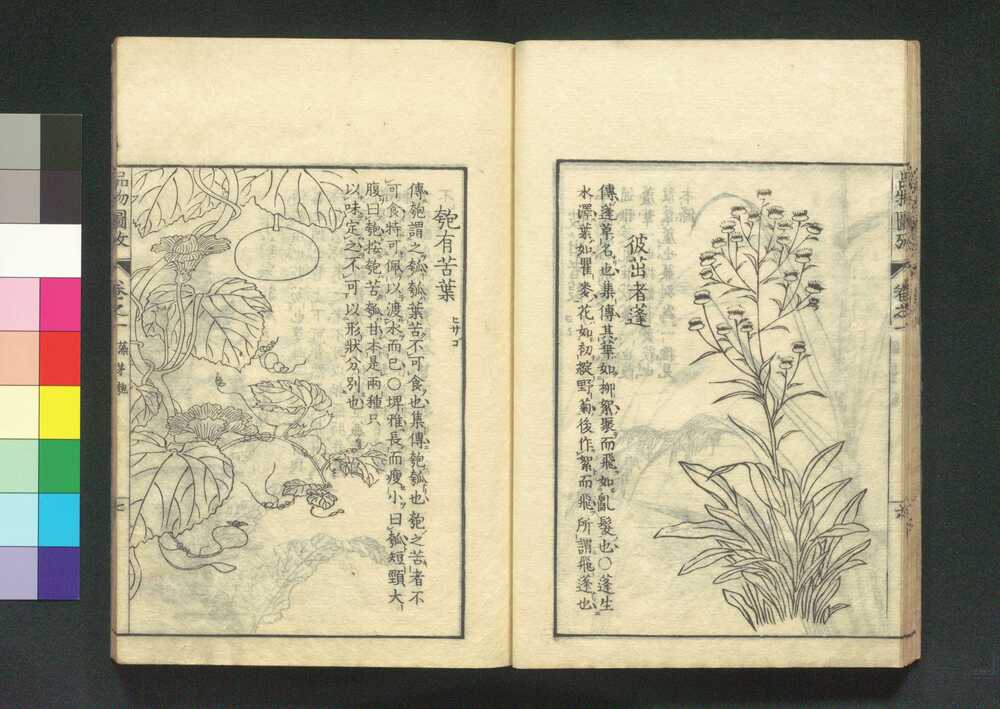 彼茁者蓬
傳蓬草名也集傳其華如柳絮聚而飛如亂髮也○蓬生
水澤葉如瞿麥花如初綻野菊後作絮而飛所謂飛蓬也
品物圖攷
卷之一
匏有苦葉
ヒサコ
傳匏謂之瓠瓠葉苦不可食也集傳匏瓠也匏之苦者不
可食特可佩以渡水而已○埤雅長而瘦小曰瓠短頸大
腹曰匏按匏苦瓠甘本是兩種只
以味定之不可以形狀分別也
品物圖攷
卷之一
七